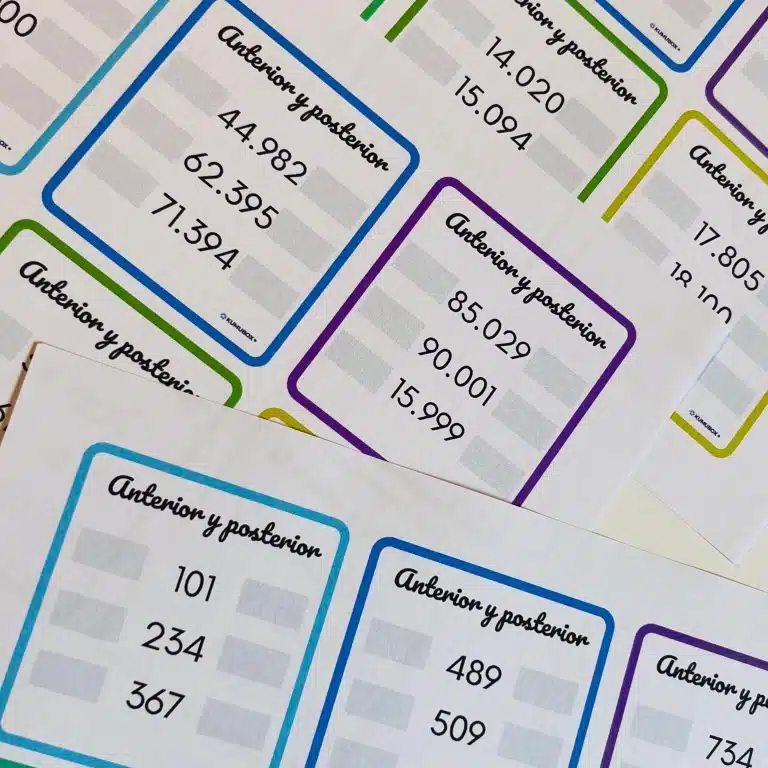 Anterior y posterior
44.982
62.395
71.394
KUMUBOX
Anterior y posterior
14.020
15.094
KUMUBOX
Anterior y
17.805
18.100
KUMUBOX
Anterior y posterior
85.029
90.001
15.999
Anterior y
Anterior y posterior
101
234
367
Anterior y posterior
489
509
Anterior y
734